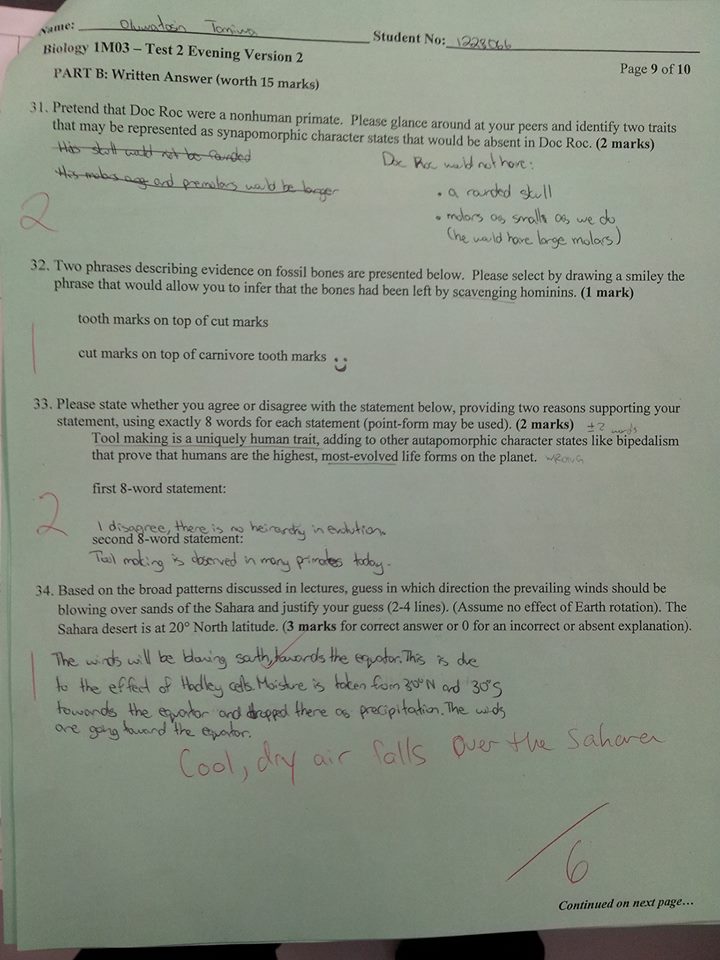 Name: Oluwatosin Tomiwa Student No: 1228066
Biology 1M03 – Test 2 Evening Version 2
Page 9 of 10
PART B: Written Answer (worth 15 marks)
31. Pretend that Doc Roc were a nonhuman primate. Please glance around at your peers and identify two traits
that may be represented as synapomorphic character states that would be absent in Doc Roc. (2 marks)
His skull would not be rounded
His molars and premolars would be larger
Doc Roc would not have:
• a rounded skull
• molars as smalls as we do
(he would have large molars)
2
32. Two phrases describing evidence on fossil bones are presented below. Please select by drawing a smiley the
phrase that would allow you to infer that the bones had been left by scavenging hominins. (1 mark)
tooth marks on top of cut marks
cut marks on top of carnivore tooth marks
1
33. Please state whether you agree or disagree with the statement below, providing two reasons supporting your
statement, using exactly 8 words for each statement (point-form may be used). (2 marks) ±2 words
Tool making is a uniquely human trait, adding to other autapomorphic character states like bipedalism
that prove that humans are the highest, most-evolved life forms on the planet. WRONG
first 8-word statement:
2
I disagree, there is no heirarchy in evolution.
second 8-word statement:
Tool making is observed in many primates today.
34. Based on the broad patterns discussed in lectures, guess in which direction the prevailing winds should be
blowing over sands of the Sahara and justify your guess (2-4 lines). (Assume no effect of Earth rotation). The
Sahara desert is at 20° North latitude. (3 marks for correct answer or 0 for an incorrect or absent explanation).
1
The winds will be blowing south, towards the equator. This is due
to the effect of Hadley cells. Moisture is taken from 30°N and 30°S
towards the equator and dropped there as precipitation. The winds
are going toward the equator.
Cool, dry air falls over the Sahara
/6
Continued on next page…